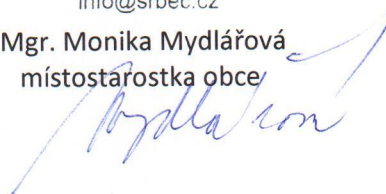 info@srbec.cz
Mgr. Monika Mydlářová
místostarostka obce
Mydlářová